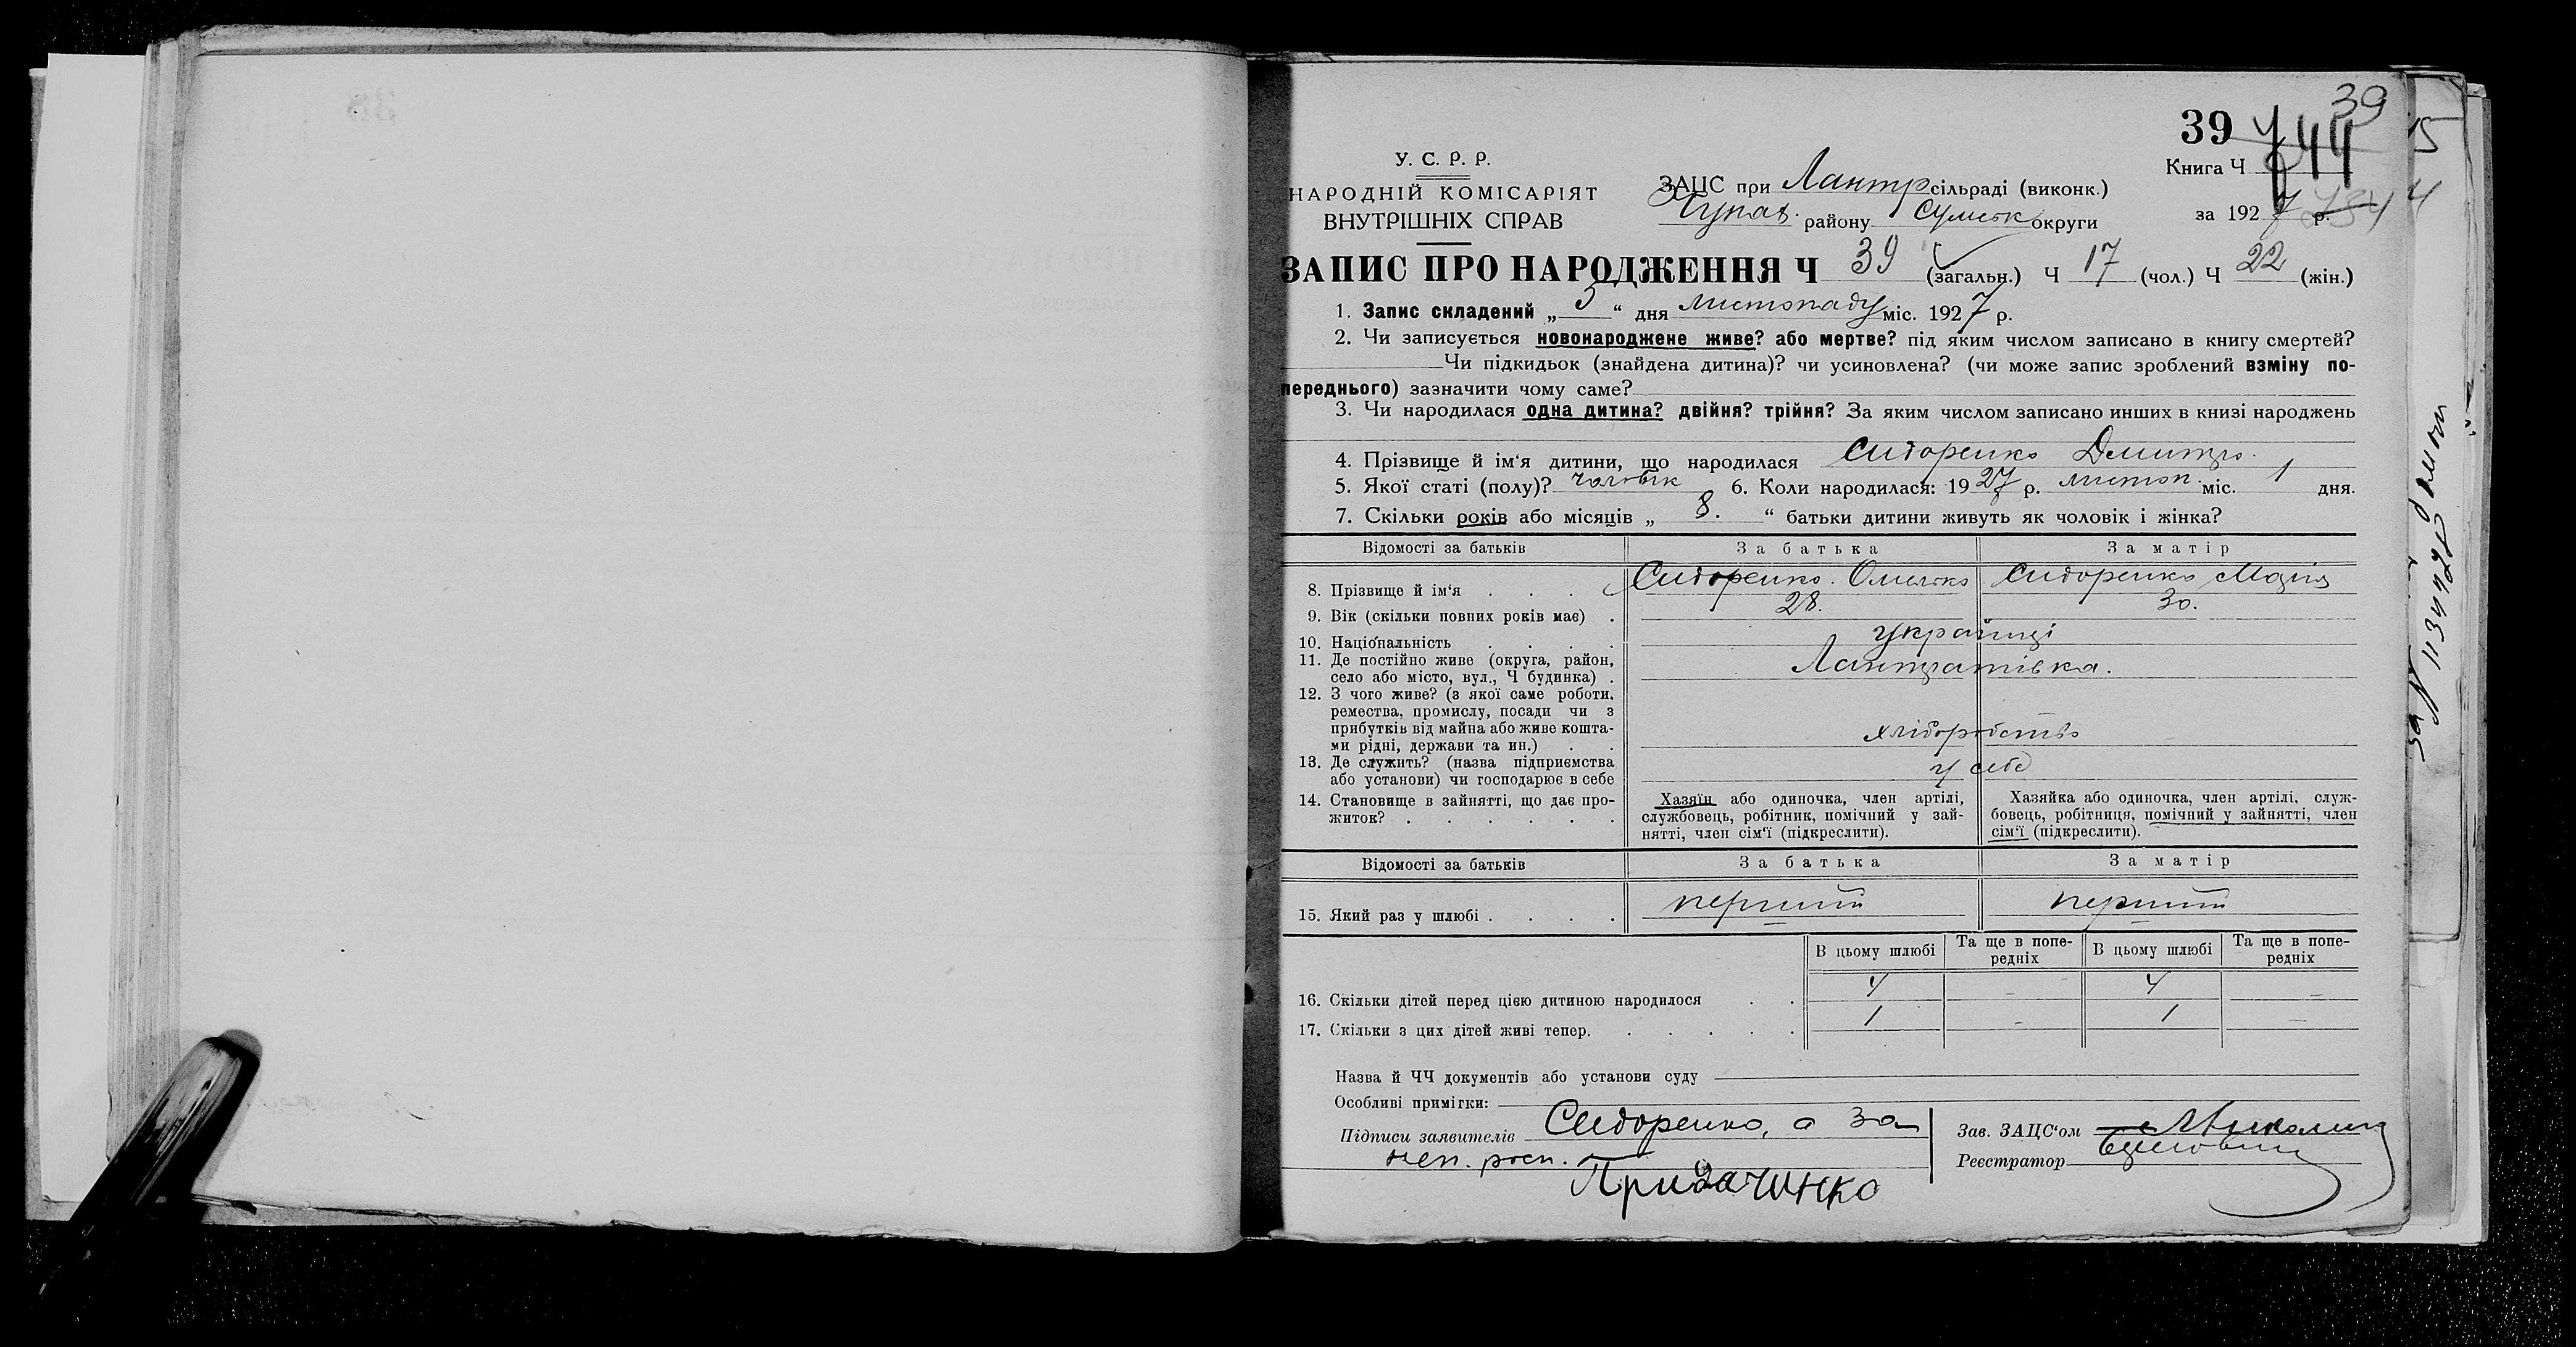 39
39
744
У. С. Р. Р.
Книга Ч
НАРОДНІЙ КОМІСАРІЯТ
ВНУТРІШНІХ СПРАВ
ЗАЦС при Лантр сільраді (виконк.)
району Сумськ округи
за 1927 р.
ЗАПИС ПРО НАРОДЖЕННЯ Ч 39 (загальн.) Ч 17 (чол.) Ч 22 (жін.)
1. Запис складений „ 3 “ дня листопаду міс. 1927 р.
2. Чи записується новонароджене живе? або мертве? під яким числом записано в книгу смертей?
Чи підкидьок (знайдена дитина)? чи усиновлена? (чи може запис зроблений взміну по-
переднього) зазначити чому саме?
3. Чи народилася одна дитина? двійня? трійня? За яким числом записано инших в книзі народжень
4. Прізвище й ім‘я дитини, що народилася Сидоренко Дмитро.
5. Якої статі (полу)? чоловік 6. Коли народилася: 1927 р. листоп. міс. 1 дня.
7. Скільки років або місяців „ 8. “ батьки дитини живуть як чоловік і жінка?
Відомості за батьків За батька За матір
8. Прізвище й ім‘я . . . Сидоренко Омелько Сидоренко Марія
9. Вік (скільки повних років має) . 28. 30.
10. Національність . . . . українці
11. Де постійно живе (округа, район,
село або місто, вул., Ч будинка) . Лантратівка.
12. З чого живе? (з якої саме роботи,
ремества, промислу, посади чи з
прибутків від майна або живе кошта-
ми рідні, держави та ин.) . . хліборобство
13. Де служить? (назва підприємства
або установи) чи господарює в себе у себе
14. Становище в зайнятті, що дає про-
житок? . . . . . .
Хазяїн або одиночка, член артілі,
службовець, робітник, помічний у зай-
нятті, член сім‘ї (підкреслити).
Хазяйка або одиночка, член артілі, служ-
бовець, робітниця, помічний у зайнятті, член
сім‘ї (підкреслити).
Відомості за батьків За батька За матір
15. Який раз у шлюбі . . . . перший перший
В цьому шлюбі Та ще в попе-
редніх В цьому шлюбі Та ще в попе-
редніх
16. Скільки дітей перед цією дитиною народилося . . 4 - 4 -
17. Скільки з цих дітей живі тепер. . . . . . 1 - 1 -
Назва й ЧЧ документів або установи суду
Особливі примітки:
Підписи заявителів Сидоренко, а за
неп. росп.
Придаченко
Зав. ЗАЦС‘ом
Реєстратор